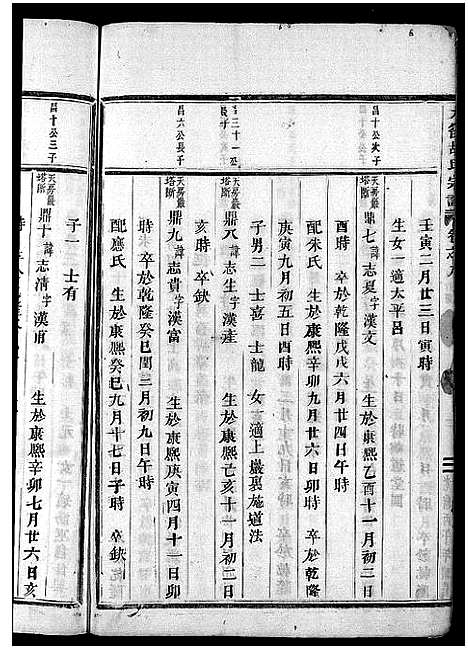 壬寅二月廿三日寅時
生女一適太平呂
昌十公次子
天房嚴塔斯 鼎七 諱志夏字漢文 生於康熙乙酉十一月初二日
酉時 卒於乾隆戊戌六月廿四日午時
配朱氏 生於康熙辛卯九月廿六日卯時 卒於乾隆
庚寅四月初五日四時
子男二 士嘉 士龍 女一適上嚴裏施道法
昌三十一公長子
鼎八 諱志貴字漢產 生於康熙己亥十一月初二日
亥時 卒缺
昌六公長子
天房嚴塔斯 鼎九 諱志貴字漢富 生於康熙庚寅四月十一日卯
時 卒於乾隆癸巳閏三月初九日午時
配應氏 生於康熙癸巳九月十七日子時 卒缺
子一 士有
昌十公三子
天房嚴塔斯 鼎十 諱志清字漢甫 生於康熙辛卯七月廿六日亥